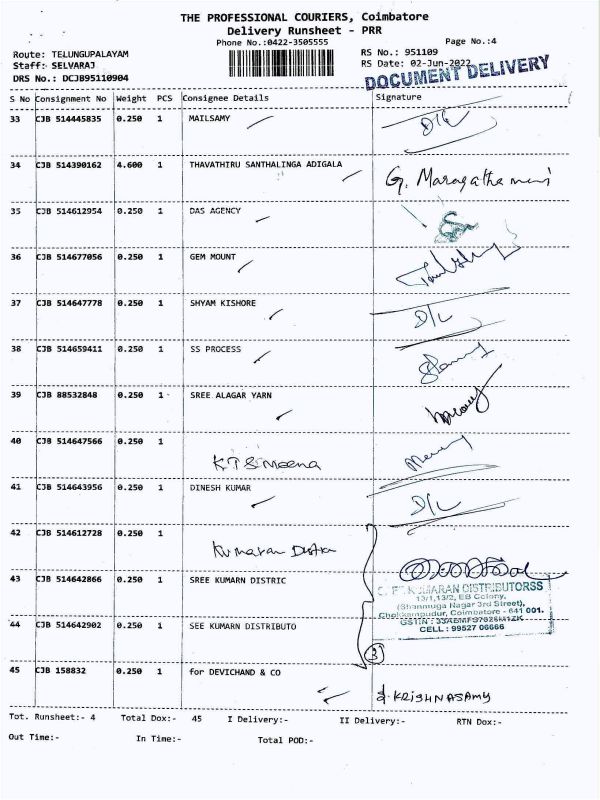 THE PROFESSIONAL COURIERS, Coimbatore
Delivery Runsheet - PRR
Phone No.:0422-3505555
Page No.:4
Route: TELUNGUPALAYAM
RS No.: 951109
Staff: SELVARAJ
RS Date: 02-Jun-2022
DRS No.: DCJB95110904
DOCUMENT DELIVERY
S No Consignment No Weight PCS Consignee Details Signature
33 CJB 514445835 0.250 1 MAILSAMY D/L
34 CJB 514390162 4.600 1 THAVATHIRU SANTHALINGA ADIGALA G. Maragathamani
35 CJB 514612954 0.250 1 DAS AGENCY
36 CJB 514677056 0.250 1 GEM MOUNT
37 CJB 514647778 0.250 1 SHYAM KISHORE D/L
38 CJB 514659411 0.250 1 SS PROCESS
39 CJB 88532848 0.250 1 SREE ALAGAR YARN
40 CJB 514647566 0.250 1 KTS Meena
41 CJB 514643956 0.250 1 DINESH KUMAR D/L
42 CJB 514612728 0.250 1 Kumaran Distri
43 CJB 514642866 0.250 1 SREE KUMARN DISTRIC
KUMARAN DISTRIBUTORSS
13/1,13/2, EB Colony,
(Shanmuga Nagar 3rd Street),
44 CJB 514642902 0.250 1 SEE KUMARN DISTRIBUTO
Coimbatore - 641 001.
CELL : 99527 06666
3
45 CJB 158832 0.250 1 for DEVICHAND & CO
KRISHNASAMY
Tot. Runsheet:- 4 Total Dox:- 45 I Delivery:- II Delivery:- RTN Dox:-
Out Time:- In Time:- Total POD:-